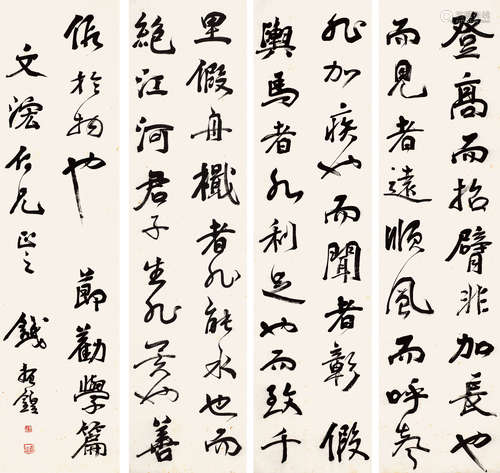 登高而招臂非加長也
而見者遠順風而呼聲
非加疾也而聞者彰假
輿馬者非利足也而致千
里假舟檝者非能水也而
絕江河君子生非異也善
假於物也 節勸學篇
文仁兄正之 錢振鍠